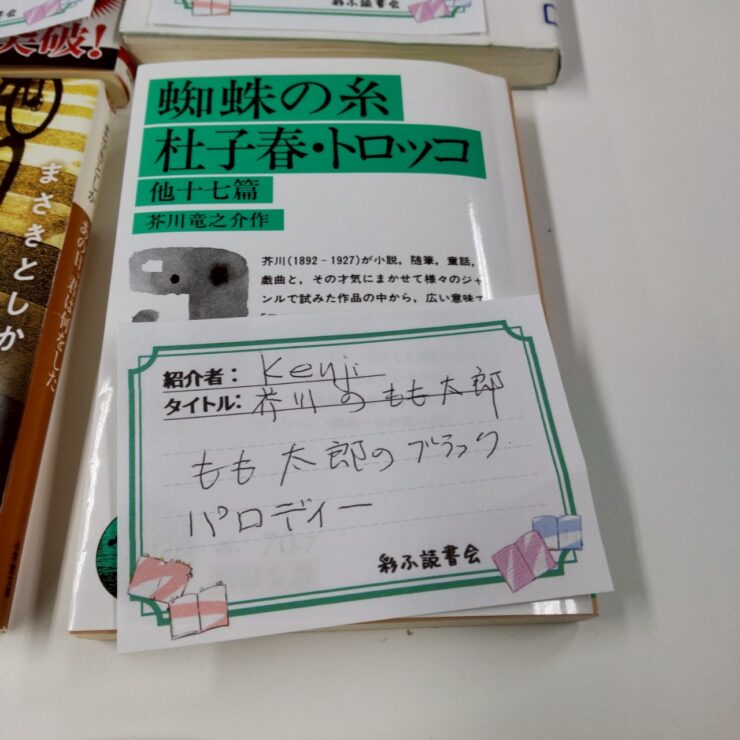 突破!
彩ふ読書会
蜘蛛の糸
杜子春・トロッコ
他十七篇
芥川竜之介作
芥川(1892-1927)が小説,随筆,童話,
戯曲と,その才気にまかせて様々のジャ
ンルで試みた作品の中から,広い意味で
まさきとしか
あの日、君は何をした
紹介者: Kenji
タイトル: 芥川のもも太郎
もも太郎のブラック
パロディー
彩ふ読書会